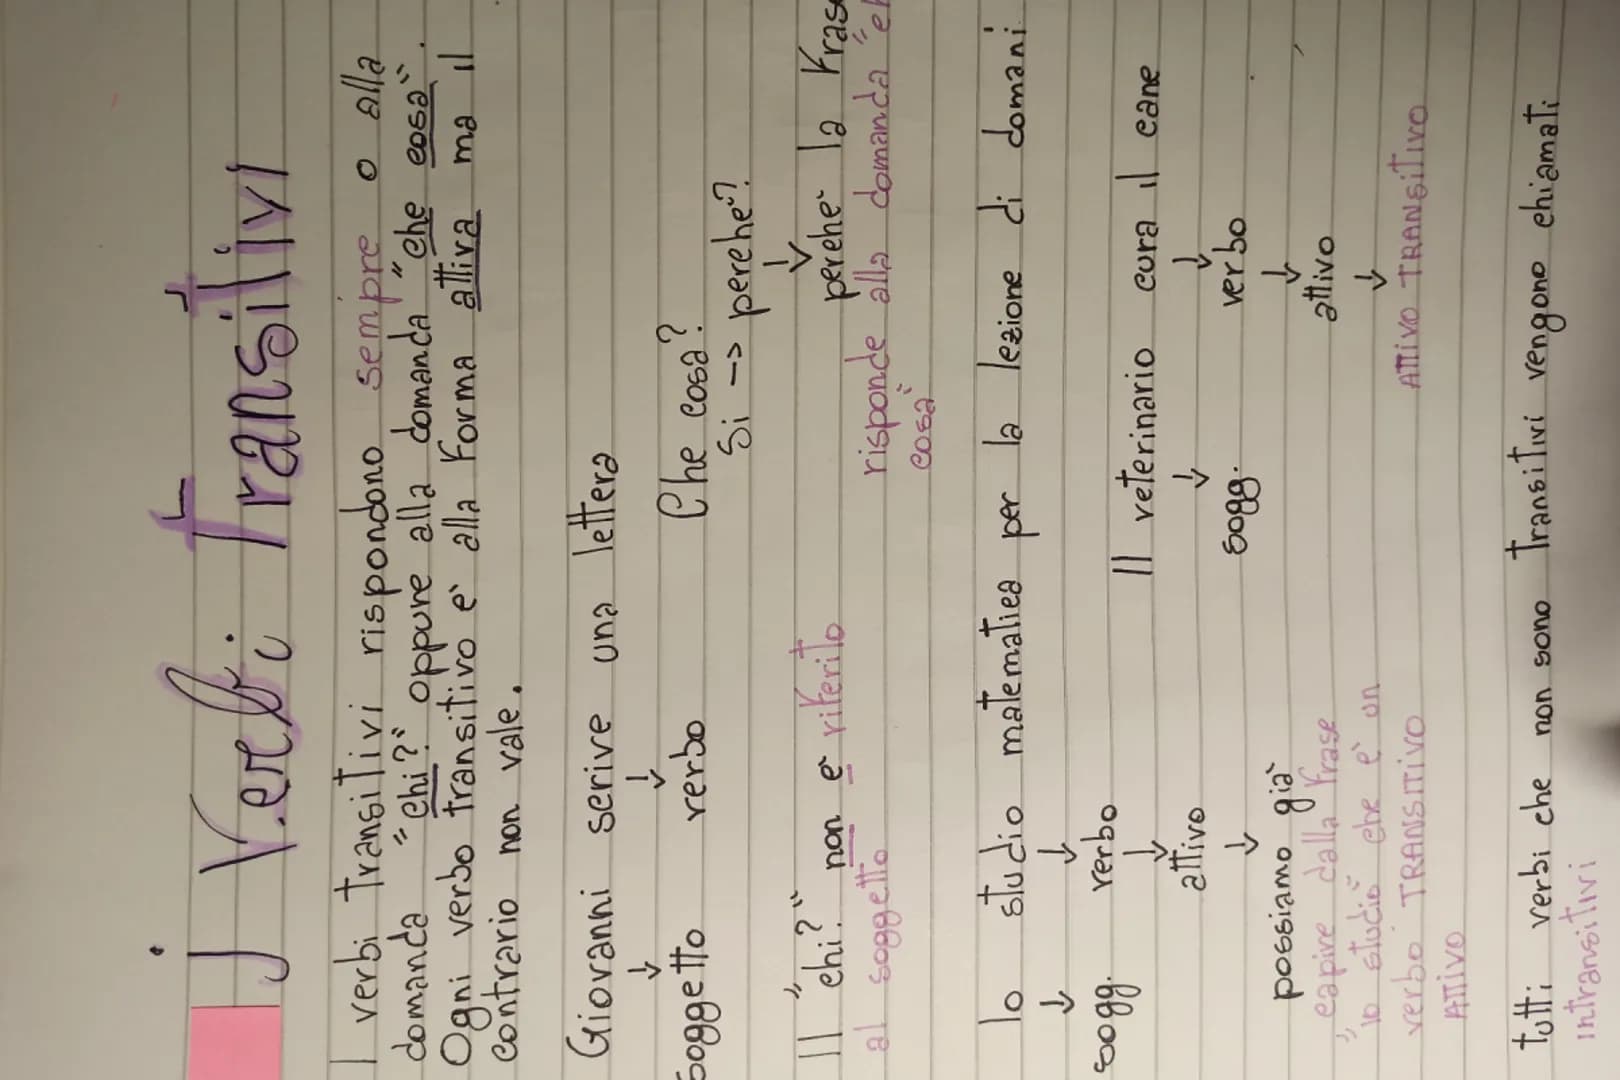 I Verbi Transitivi
I verbi transitivi rispondono sempre o alla
domanda "chi?" oppure alla domanda "che cosa".
Ogni verbo transitivo è alla forma attiva ma il
contrario non vale.
Giovanni scrive una lettera
soggetto verbo Che cosa?
Si -> perché?
Il "chi?" non è riferito perché la frase
al soggetto risponde alla domanda
cosa"
Io studio matematica per la lezione di domani.
sogg. verbo Il veterinario cura il cane
attivo sogg. verbo
possiamo già attivo
capire dalla frase
"io studio" che è un ATTIVO TRANSITIVO
verbo TRANSITIVO
ATTIVO
tutti verbi che non sono transitivi vengono chiamati
intransitivi